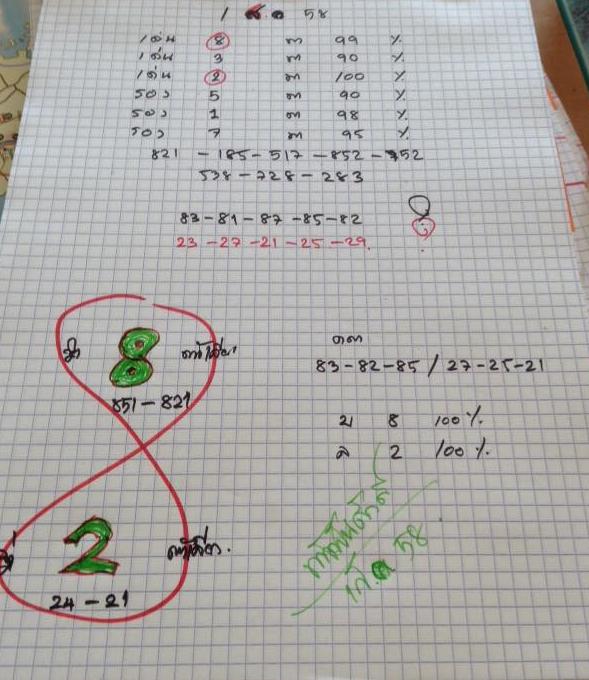 1 ส.ค 58
เด่น 8 ต 99 %
เด่น 3 ต 90 %
เด่น 2 ต 100 %
รอง 5 ต 90 %
รอง 1 ต 98 %
รอง 7 ต 95 %
821 - 185 - 517 - 852 - 752
538 - 728 - 283
83 - 81 - 87 - 85 - 82
23 - 27 - 21 - 25 - 29.
8
851 - 821
83 - 82 - 85 / 27 - 25 - 21
บ 8 100 %
ล 2 100 %
2
24 - 21
58